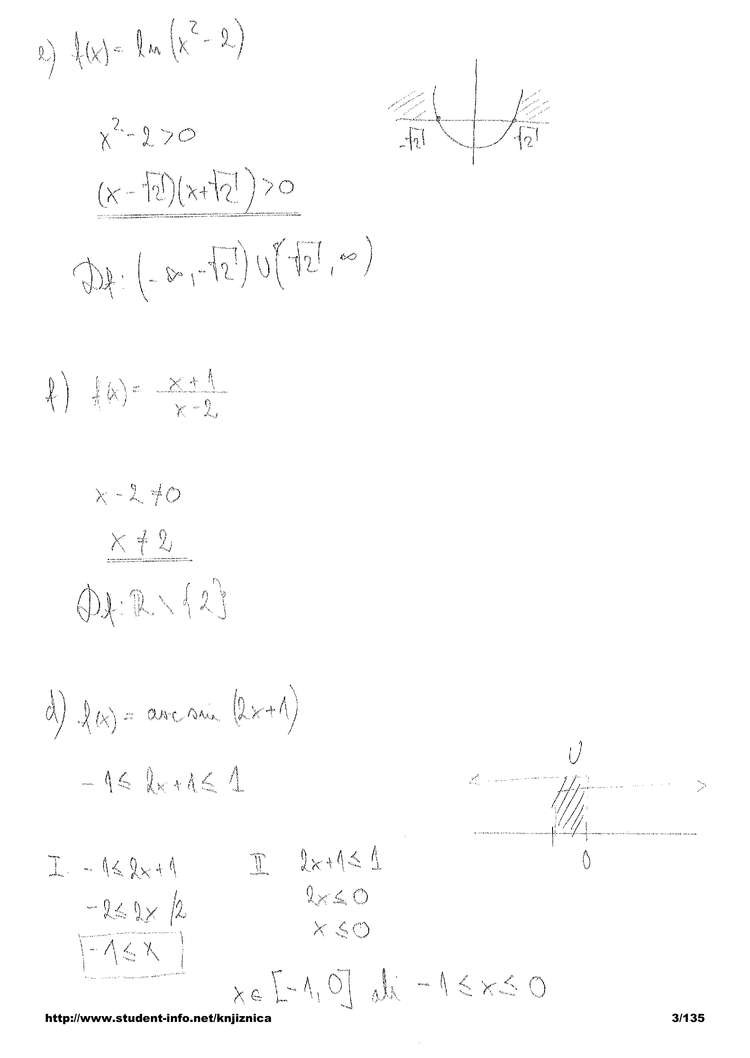 e) f(x) = ln (x² - 2)
x² - 2 > 0
(x - √2)(x + √2) > 0
-√2 √2
Df: (-∞, -√2) ∪ (√2, ∞)
f) f(x) = x + 1 / x - 2
x - 2 ≠ 0
x ≠ 2
Df: ℝ \ {2}
d) f(x) = arc sin (2x + 1)
- 1 ≤ 2x + 1 ≤ 1
U
0
I. - 1 ≤ 2x + 1
-2 ≤ 2x /2
-1 ≤ x
II 2x + 1 ≤ 1
2x ≤ 0
x ≤ 0
x ∈ [-1, 0] ali -1 ≤ x ≤ 0
http://www.student-info.net/knjiznica 3/135